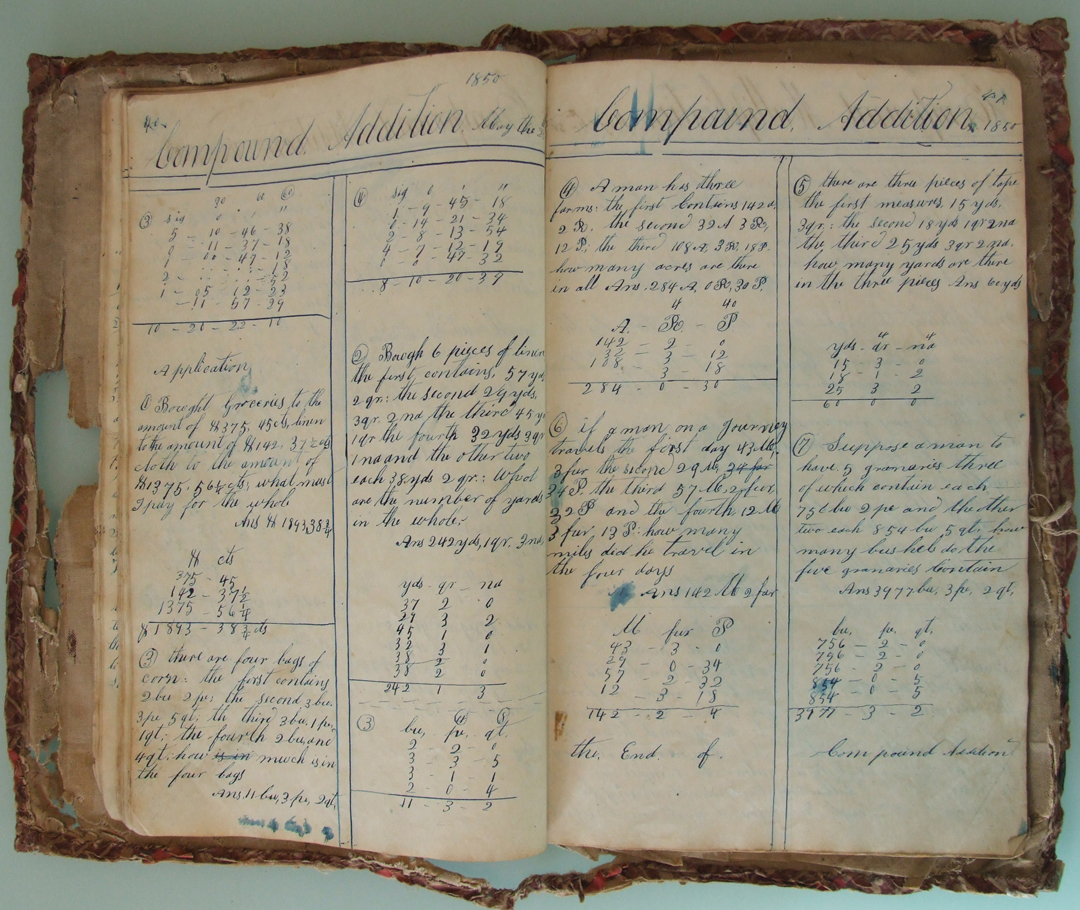 1850
40
Compound Addition May the
③ sig o ' "
5 - 10 - 46 - 38
11 - 37 - 18
00 - 49 - 12
1 - 05 - 12 - 23
- 11 - 57 - 39
10 - 20 - 22 - 10
Application
① Bought Groceries to the
amount of $375, 45cts, linen
to the amount of $142, 37½ cts
cloth to the amount of
$1375, 56¼ cts, what must
I pay for the whole
Ans $ 1893,38¾
$ cts
375 - 45
142 - 37½
1375 - 56¼
$ 1893 - 38¾ cts
③ there are four bags of
corn: the first contains
2 bu 2 pe: the second 3 bu.
3 pe, 5 qt: th third 3 bu, 1 pe,
1 qt: the fourth 2 bu, and
4 qt: how is in much is in
the four bags
Ans. 11 bu, 3 pe, 2 qt,
④ sig o ' "
1 - 9 - 45 - 18
0 - 14 - 21 - 34
2 - 8 - 13 - 54
4 - 7 - 12 - 19
0 - 0 - 47 - 32
8 - 10 - 20 - 37
② Baegh 6 pieces of linen
the first, contains, 57 yd
2 qr: the second 29 yds,
3 qr. 2 na the third 45 yd
1 qr the fourth 32 yds 3 qr
1 na and the other two
each 38 yds 2 gr.: What
are the number of yards
in the whole,
Ans 242 yds, 1 qr, 3 na,
yds - qr - na
37 2 0
29 3 2
45 1 0
32 3 1
38 2 0
38 2 0
242 1 3
③ bu, pe, qt,
2 - 2 - 0
3 - 3 - 5
3 - 1 - 1
2 - 0 - 4
11 - 3 - 2
41
Compaund, Addition, 1850
④ A man has three
farms: the first Contains 142 a,
2 R. the second 32 A 3 R,
12 P, the third 108 A, 3 R, 18 P.
how many acres are there
in all Ans. 284 A, 0 R, 30 P.
4 40
A - R - P
142 - 2 - 0
32 - 3 - 12
108 - 3 - 18
284 - 0 - 30
⑥ if a man on a Journey
travels the first day 43 M,
3 fur the second 29 M, 34 fur
34 P. the third 57 M. 2 fur,
32 P and the fourth 12 M
3 fur 13 P: how many
miles did he travel in
the four days
Ans 142 M 2 far
M fur P
43 - 3 - 0
29 - 0 - 34
57 - 2 - 32
12 - 3 - 18
142 - 2 - 4
the, End of.
⑤ there are three pieces of tape
the first measures, 15 yds,
3 qr: the second 18 yds 1 qr 2 na
the third 25 yds 3 qr 2 na.
how many yards are there
in the three pieces Ans 60 yds
4 4
yds - qr - na
15 3 - 0
18 - 1 2
25 3 2
60 0 0
⑦ Suppose a man to
have 5 granaries three
of which contain each
756 bu 2 pe and the other
two each 854 bu, 5 qts, how
many bushels do the
five granaries Contain
Ans 3977 bu, 3 pe, 2 qt,
bu, pe, qt,
756 - 2 - 0
756 - 2 - 0
756 - 2 - 0
854 - 0 - 5
854 - 0 - 5
3977 - 3 - 2
Compound Addition